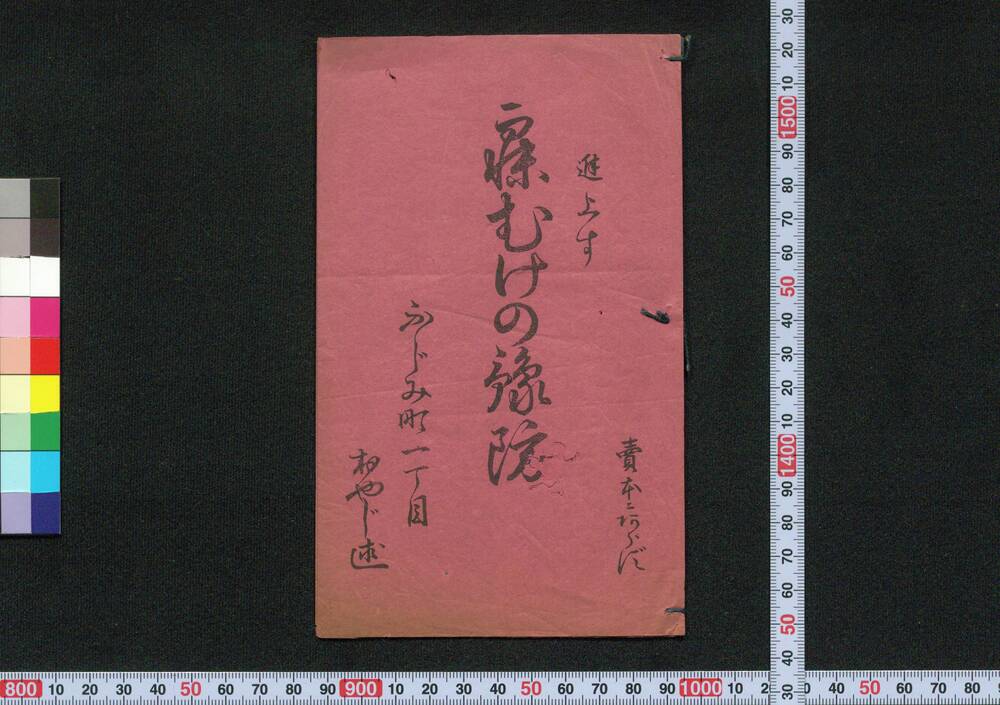 賣本ニあらず
進上す
寐むけの豫防
ふじみ町一丁目
おやじ述
30
20
10
1500
90
80
70
60
50
40
30
20
10
1400
90
80
70
60
50
40
30
800 10 20 30 40 50 60 70 80 90 900 10 20 30 40 50 60 70 80 90 1000 10 2
0 40 50 60 70 80